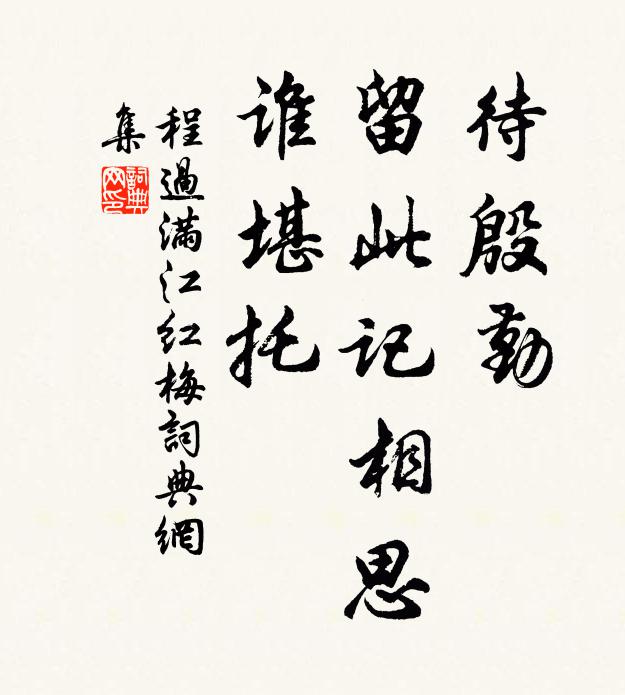 待殷勤
留此記相思
谁堪托
程過滿江红梅詞典網
集
詞典
网印